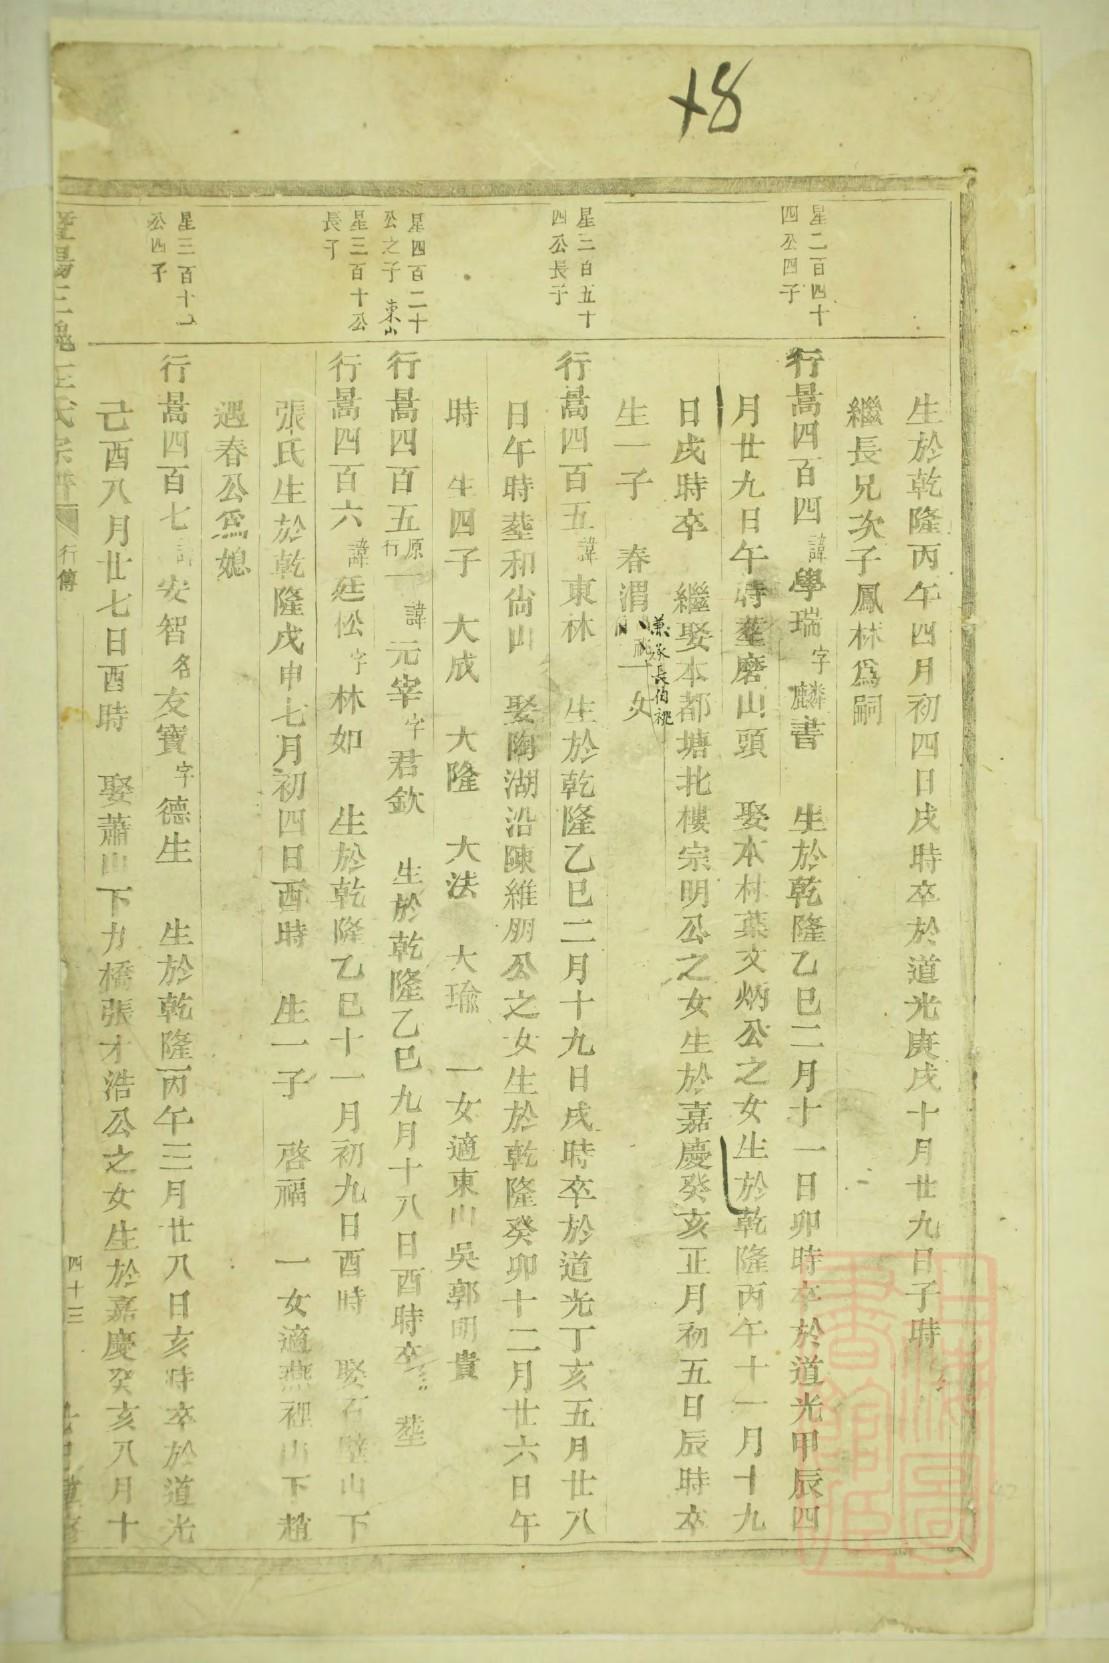 +8
生於乾隆丙午四月初四日戌時卒於道光庚戌十月廿九日子時
繼長兄次子鳳林爲嗣
星二百四十
四公四子
行暠四百四諱學瑞字麟書 生於乾隆乙巳二月十一日卯時卒於道光甲辰四
月廿九日午時塟磨山頭 娶本村葉文炳公之女生於乾隆丙午十一月十九
日戌時卒 繼娶本都塘北樓宗明公之女生於嘉慶癸亥正月初五日辰時卒
生一子 春渭 兼承長伯祧 一女
星二百五十
四公長子
行暠四百五諱東林 生於乾隆乙巳二月十九日戌時卒於道光丁亥五月廿八
日午時塟和尙山 娶陶湖沿陳維朋公之女生於乾隆癸卯十二月廿六日午
時 生四子 大成 大隆 大法 大瑜 一女適東山吳郭明貴
星四百二十
公之子 東山
行暠四百五原行一諱元宰字君欽 生於乾隆乙巳九月十八日酉時卒 塟
星三百十公
長子
行暠四百六諱廷松字林如 生於乾隆乙巳十一月初九日酉時 娶石壁山下
張氏生於乾隆戊申七月初四日酉時 生一子 啓福 一女適燕裡山下趙
遇春公爲媳
星三百十一
公四子
行暠四百七諱安智名友寶字德生 生於乾隆丙午三月廿八日亥時卒於道光
己酉八月廿七日酉時 娶蕭山下力橋張才浩公之女生於嘉慶癸亥八月十
暨陽三槐王氏宗譜 行傳 四十三